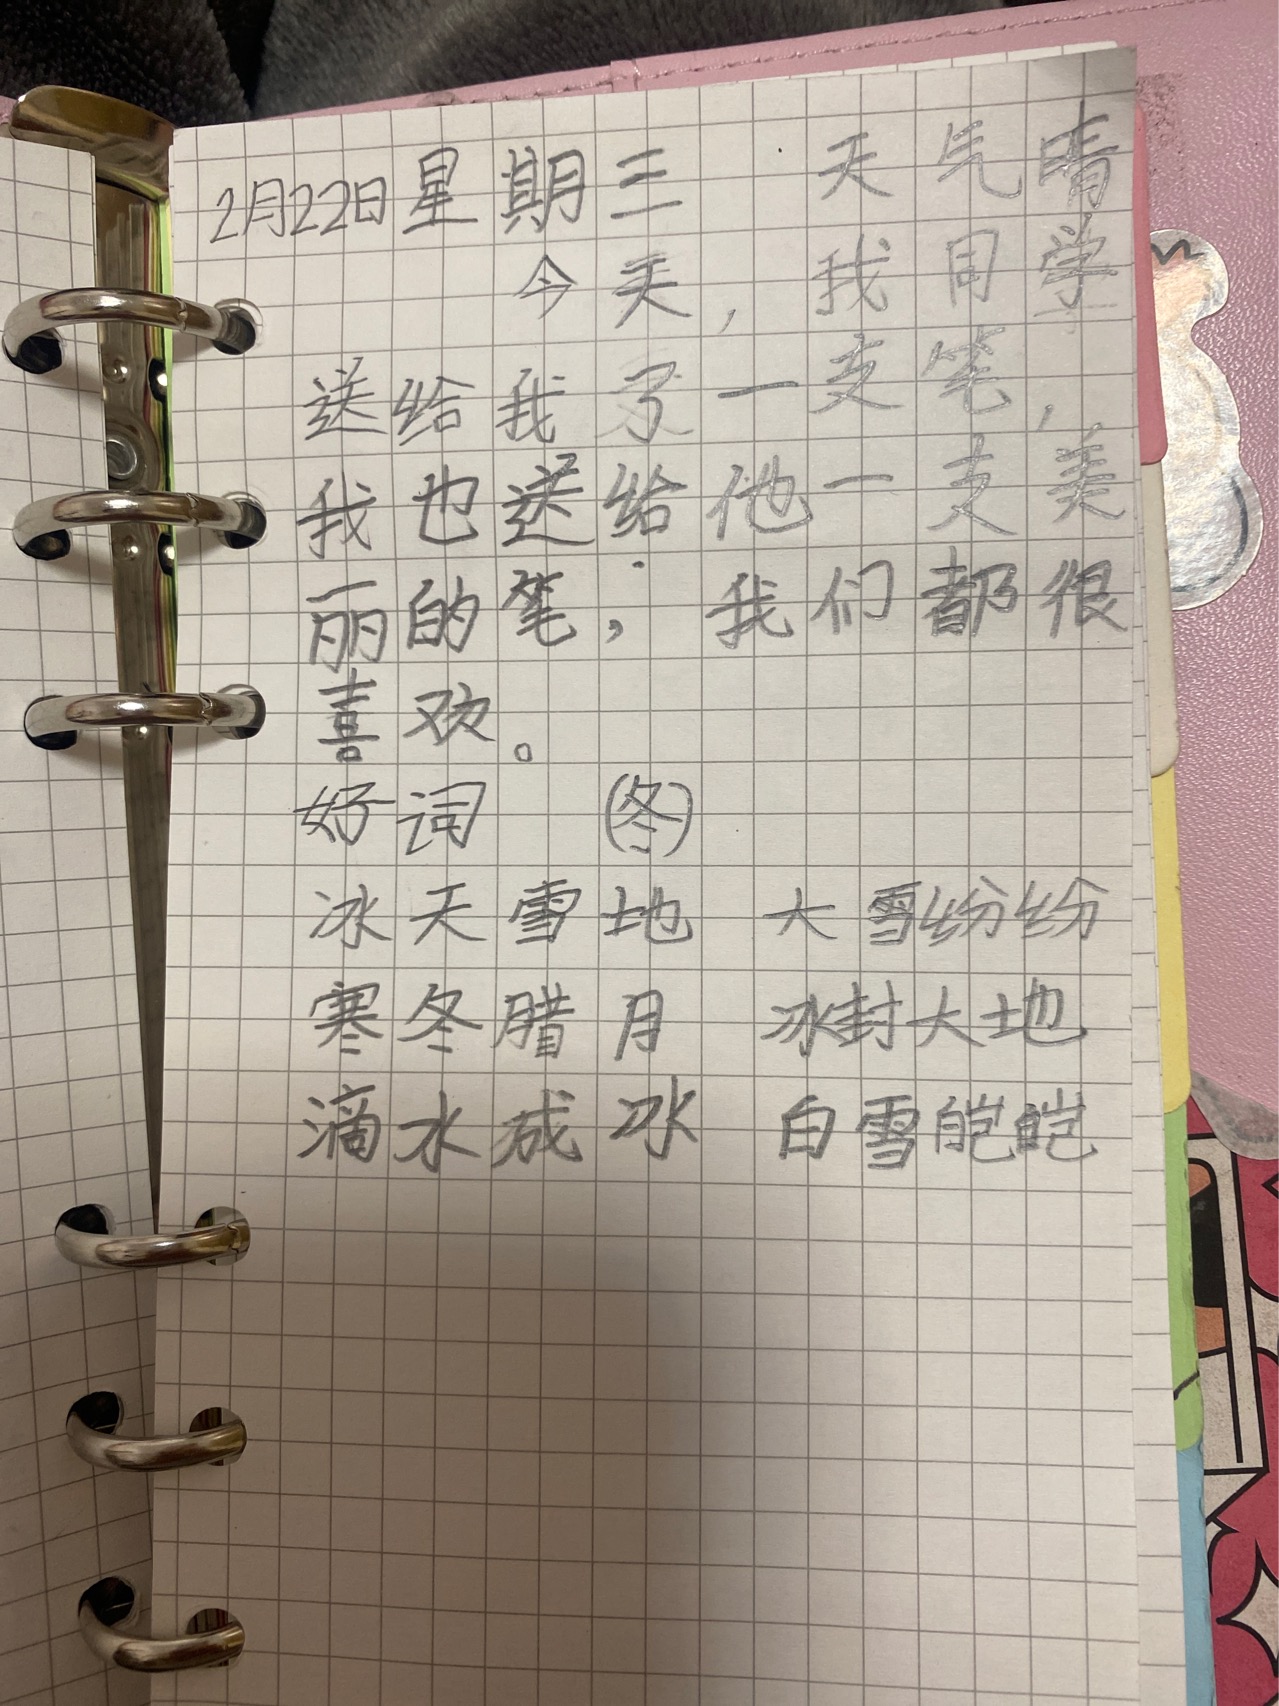 2月22日星期三 天气晴
今天,我同学
送给我了一支笔,
我也送给他一支美
丽的笔,我们都很
喜欢。
好词 (冬)
冰天雪地 大雪纷纷
寒冬腊月 冰封大地
滴水成冰 白雪皑皑